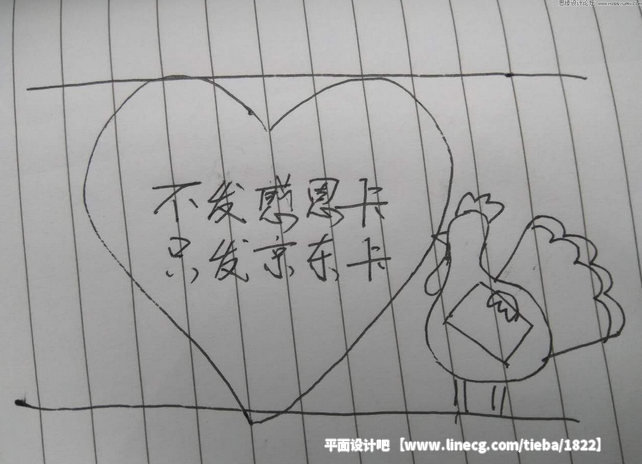 不发感恩卡
只发京东卡
平面设计吧【www.linecg.com/tieba/1822】